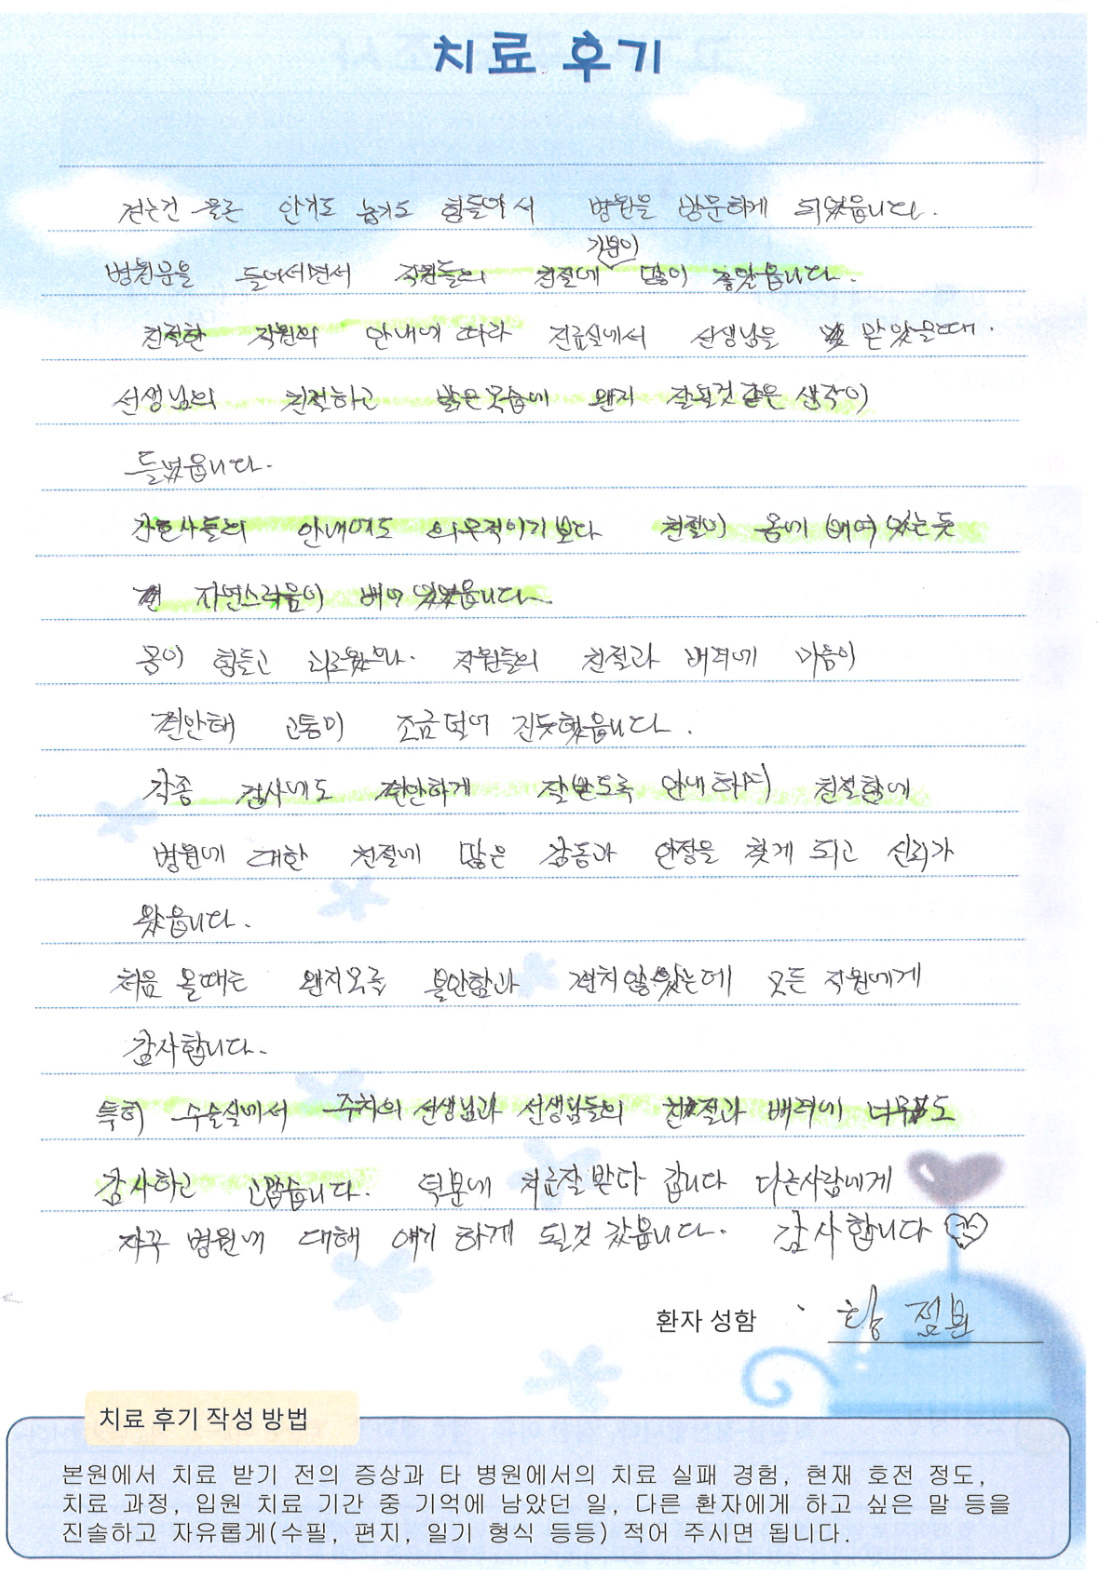 치료 후기
걷는건 물론 안기도 눕기도 힘들어서 병원을 방문하게 되었읍니다.
기분이
병원문을 들어서면서 직원들의 친절에 많이 좋았읍니다.
친절한 직원의 안내에 따라 진료실에서 선생님을 만났을때.
선생님의 친절하고 밝은모습에 왠지 잘될것같은 생각이
들었읍니다.
간호사들의 안내에도 의무적이기보다 친절이 몸에 배여 있는듯
자연스러움이 배어 있었읍니다.
몸이 힘들고 괴로웠으나. 직원들의 친절과 배려에 마음이
편안해 고통이 조금 덜어 진듯했읍니다.
각종 검사에도 편안하게 잘받도록 안내하며 친절함에
병원에 대한 친절에 많은 감동과 안정을 찾게 되고 신뢰가
왔읍니다.
처음 올때는 왠지모를 불안함과 편치않았는데 모든 직원에게
감사합니다.
특히 수술실에서 주치의 선생님과 선생님들의 친절과 배려에 너무도
감사하고 고맙습니다. 덕분에 치료잘 받다 갑니다 다른사람에게
자꾸 병원에 대해 얘기 하게 될것 같읍니다. 감사합니다
환자 성함 황 점분
치료 후기 작성 방법
본원에서 치료 받기 전의 증상과 타 병원에서의 치료 실패 경험, 현재 호전 정도,
치료 과정, 입원 치료 기간 중 기억에 남았던 일, 다른 환자에게 하고 싶은 말 등을
진솔하고 자유롭게(수필, 편지, 일기 형식 등등) 적어 주시면 됩니다.